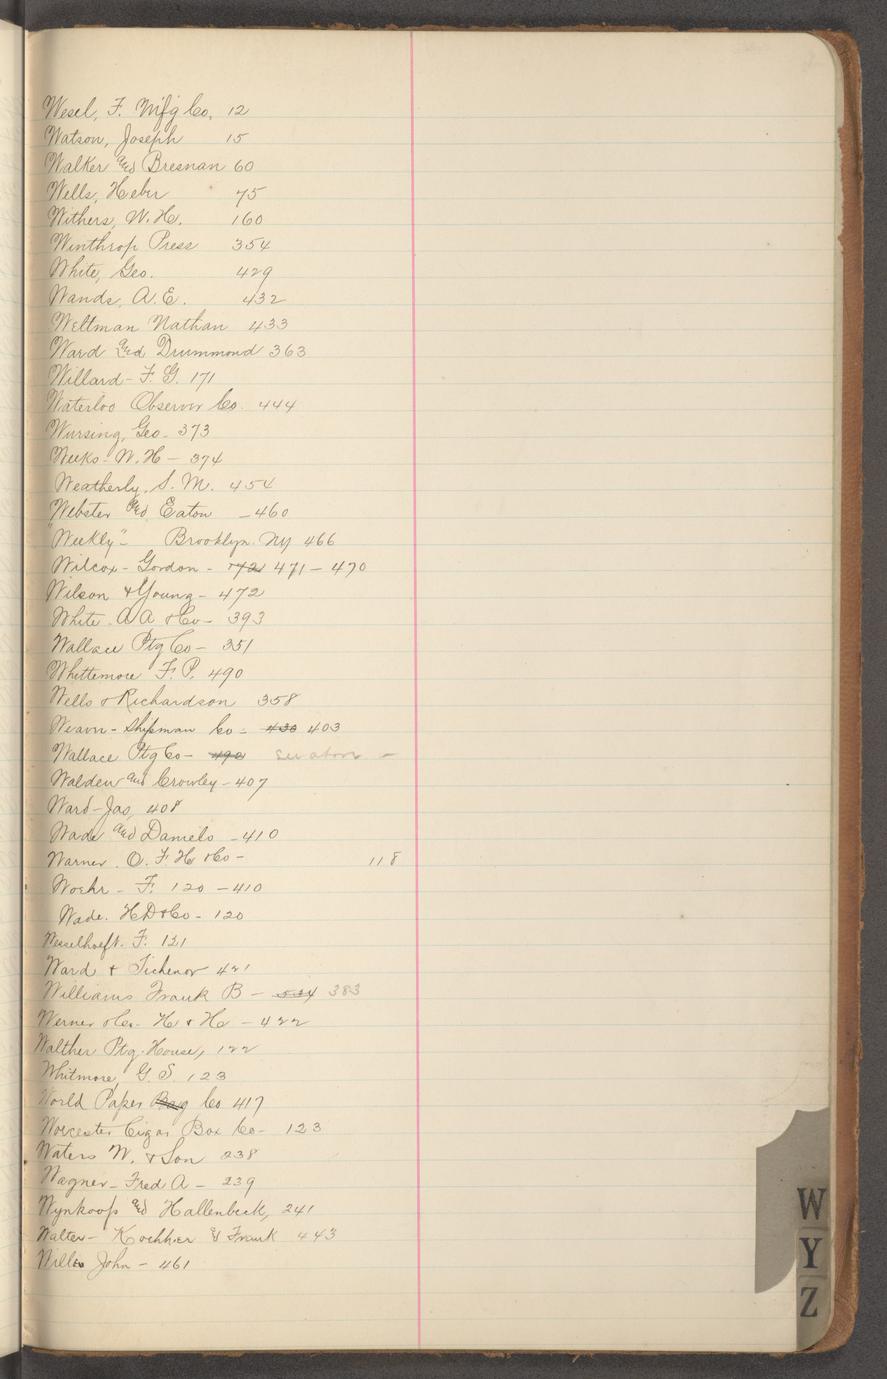 Wesel, F. Mfg Co, 12
Watson, Joseph 15
Walker and Bresnan 60
Wells, Heber 75
Withers, W. H. 160
Winthrop Press 354
White, Geo. 429
Wands, A. E. 432
Weltman Nathan 433
Ward and Drummond 363
Willard - F. G. 171
Waterloo Observer Co. 444
Wursing, Geo - 373
Weeks - W. H - 374
Weatherly, S. M. 454
Webster and Eaton - 460
"Weekly" - Brooklyn. NY 466
Wilcox - Gordon - 471 - 470
Wilson & Young - 472
White. A A & Co - 393
Wallace Ptg Co - 351
Whittemore F. P. 490
Wells & Richardson 358
Weavn - Shipman Co - 430 403
Wallace Ptg Co - 490 See above -
Walden and Crowley - 407
Ward - Jas, 408
Wade and Daniels - 410
Warner. O. F. H & Co - 118
Woehr - F. 120 - 410
Wade. H D & Co - 120
Wesselhoeft. F. 121
Ward & Tichenor 421
Williams Frank B - 534 383
Werner & Co. H & H - 422
Walther Ptg. House, 122
Whitmore, G. S. 123
World Paper Bag Co 417
Worcester Cigar Box Co - 123
Waters W. & Son 238
Wagner - Fred A - 239
Wynkoop and Hallenbeck, 241
Walter - & Frank 443
John - 461
W
Y
Z